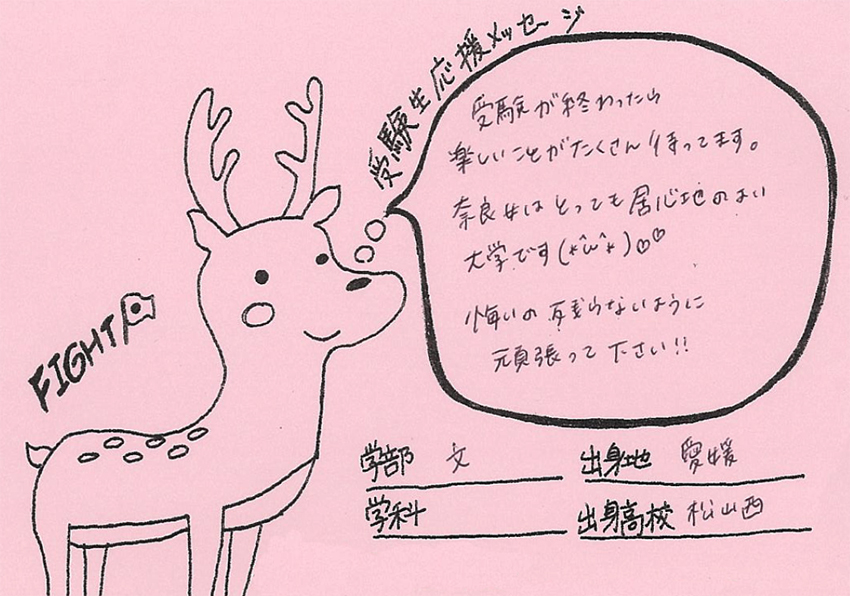 受験生応援メッセージ
受験が終わったら
楽しいことがたくさん待ってます。
奈良女はとっても居心地のよい
大学です(*^ω^*)♡♡
悔いの残らないように
頑張って下さい!!
FIGHT
学部 文
出身地 愛媛
学科
出身高校 松山西